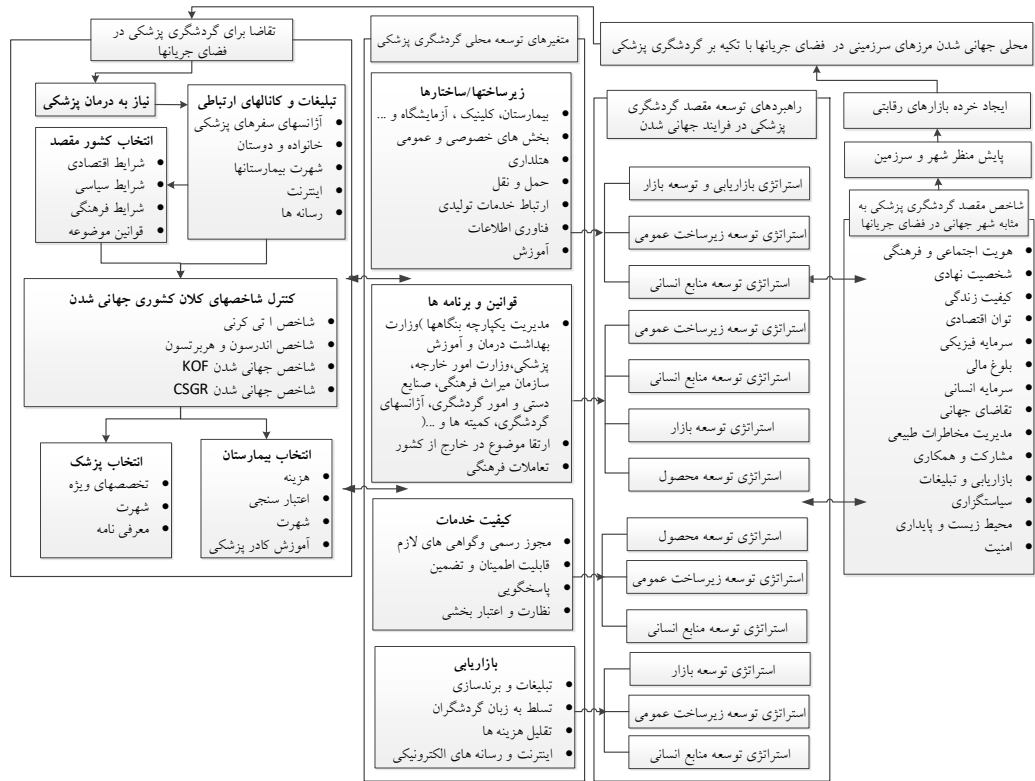 محلی جهانی شدن مرزهای سرزمینی در فضای جریانها با تکیه بر گردشگری پزشکی
ایجاد خرده بازارهای رقابتی
پایش منظر شهر و سرزمین
شاخص مقصد گردشگری پزشکی به
مثابه شهر جهانی در فضای جریانها
هویت اجتماعی و فرهنگی
شخصیت نهادی
کیفیت زندگی
توان اقتصادی
سرمایه فیزیکی
بلوغ مالی
سرمایه انسانی
تقاضای جهانی
مدیریت مخاطرات طبیعی
مشارکت و همکاری
بازاریابی و تبلیغات
سیاستگزاری
محیط زیست و پایداری
امنیت
راهبردهای توسعه مقصد گردشگری
پزشکی در فرایند جهانی شدن
استراتژی بازاریابی و توسعه بازار
استراتژی توسعه زیرساخت عمومی
استراتژی توسعه منابع انسانی
استراتژی توسعه زیرساخت عمومی
استراتژی توسعه منابع انسانی
استراتژی توسعه بازار
استراتژی توسعه محصول
استراتژی توسعه محصول
استراتژی توسعه زیرساخت عمومی
استراتژی توسعه منابع انسانی
استراتژی توسعه بازار
استراتژی توسعه زیرساخت عمومی
استراتژی توسعه منابع انسانی
متغیرهای توسعه محلی گردشگری پزشکی
زیرساختها/ساختارها
بیمارستان، کلینیک ، آزمایشگاه و ...
بخش های خصوصی و عمومی
هتلداری
حمل و نقل
ارتباط خدمات تولیدی
فناوری اطلاعات
آموزش
قوانین و برنامه ها
مدیریت یکپارچه بنگاهها )وزارت
بهداشت درمان و آموزش
پزشکی،وزارت امور خارجه،
سازمان میراث فرهنگی، صنایع
دستی و امور گردشگری، آژانسهای
گردشگری، کمیته ها و ...(
ارتقا موضوع در خارج از کشور
تعاملات فرهنگی
کیفیت خدمات
مجوز رسمی وگواهی های لازم
قابلیت اطمینان و تضمین
پاسخگویی
نظارت و اعتبار بخشی
بازاریابی
تبلیغات و برندسازی
تسلط به زبان گردشگران
تقلیل هزینه ها
اینترنت و رسانه های الکترونیکی
تقاضا برای گردشگری پزشکی در
فضای جریانها
نیاز به درمان پزشکی
تبلیغات و کانالهای ارتباطی
آژانسهای سفرهای پزشکی
خانواده و دوستان
شهرت بیمارستانها
اینترنت
رسانه ها
انتخاب کشور مقصد
شرایط اقتصادی
شرایط سیاسی
شرایط فرهنگی
قوانین موضوعه
کنترل شاخصهای کلان کشوری جهانی شدن
شاخص ا تی کرنی
شاخص اندرسون و هربرتسون
شاخص جهانی شدن KOF
شاخص جهانی شدن CSGR
انتخاب بیمارستان
هزینه
اعتبار سنجی
شهرت
آموزش کادر پزشکی
انتخاب پزشک
تخصصهای ویژه
شهرت
معرفی نامه